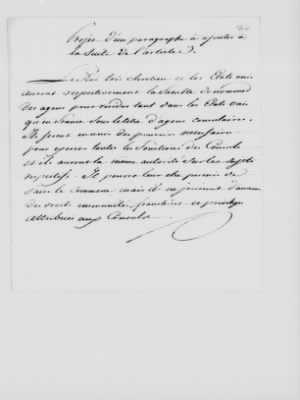 Projet d'un paragraphe à ajouter à
la suite de l'article
Le Roi très chretien et les Etats unis
auront respectivement la faculté de nommer
des agens pour résider tant dans les Etats unis
qu'en France sous le titre d'agens consulaires.
Ils seront munis des pouvoirs nécessaires
pour exercer toutes les fonctions des Consuls
et ils auront la même autorité sur les sujets
respectifs. Il pourra leur être permis de
faire le commerce mais ils ne jouiront d'aucun
des droits immunités, franchises et privileges
attribués aux Consuls.